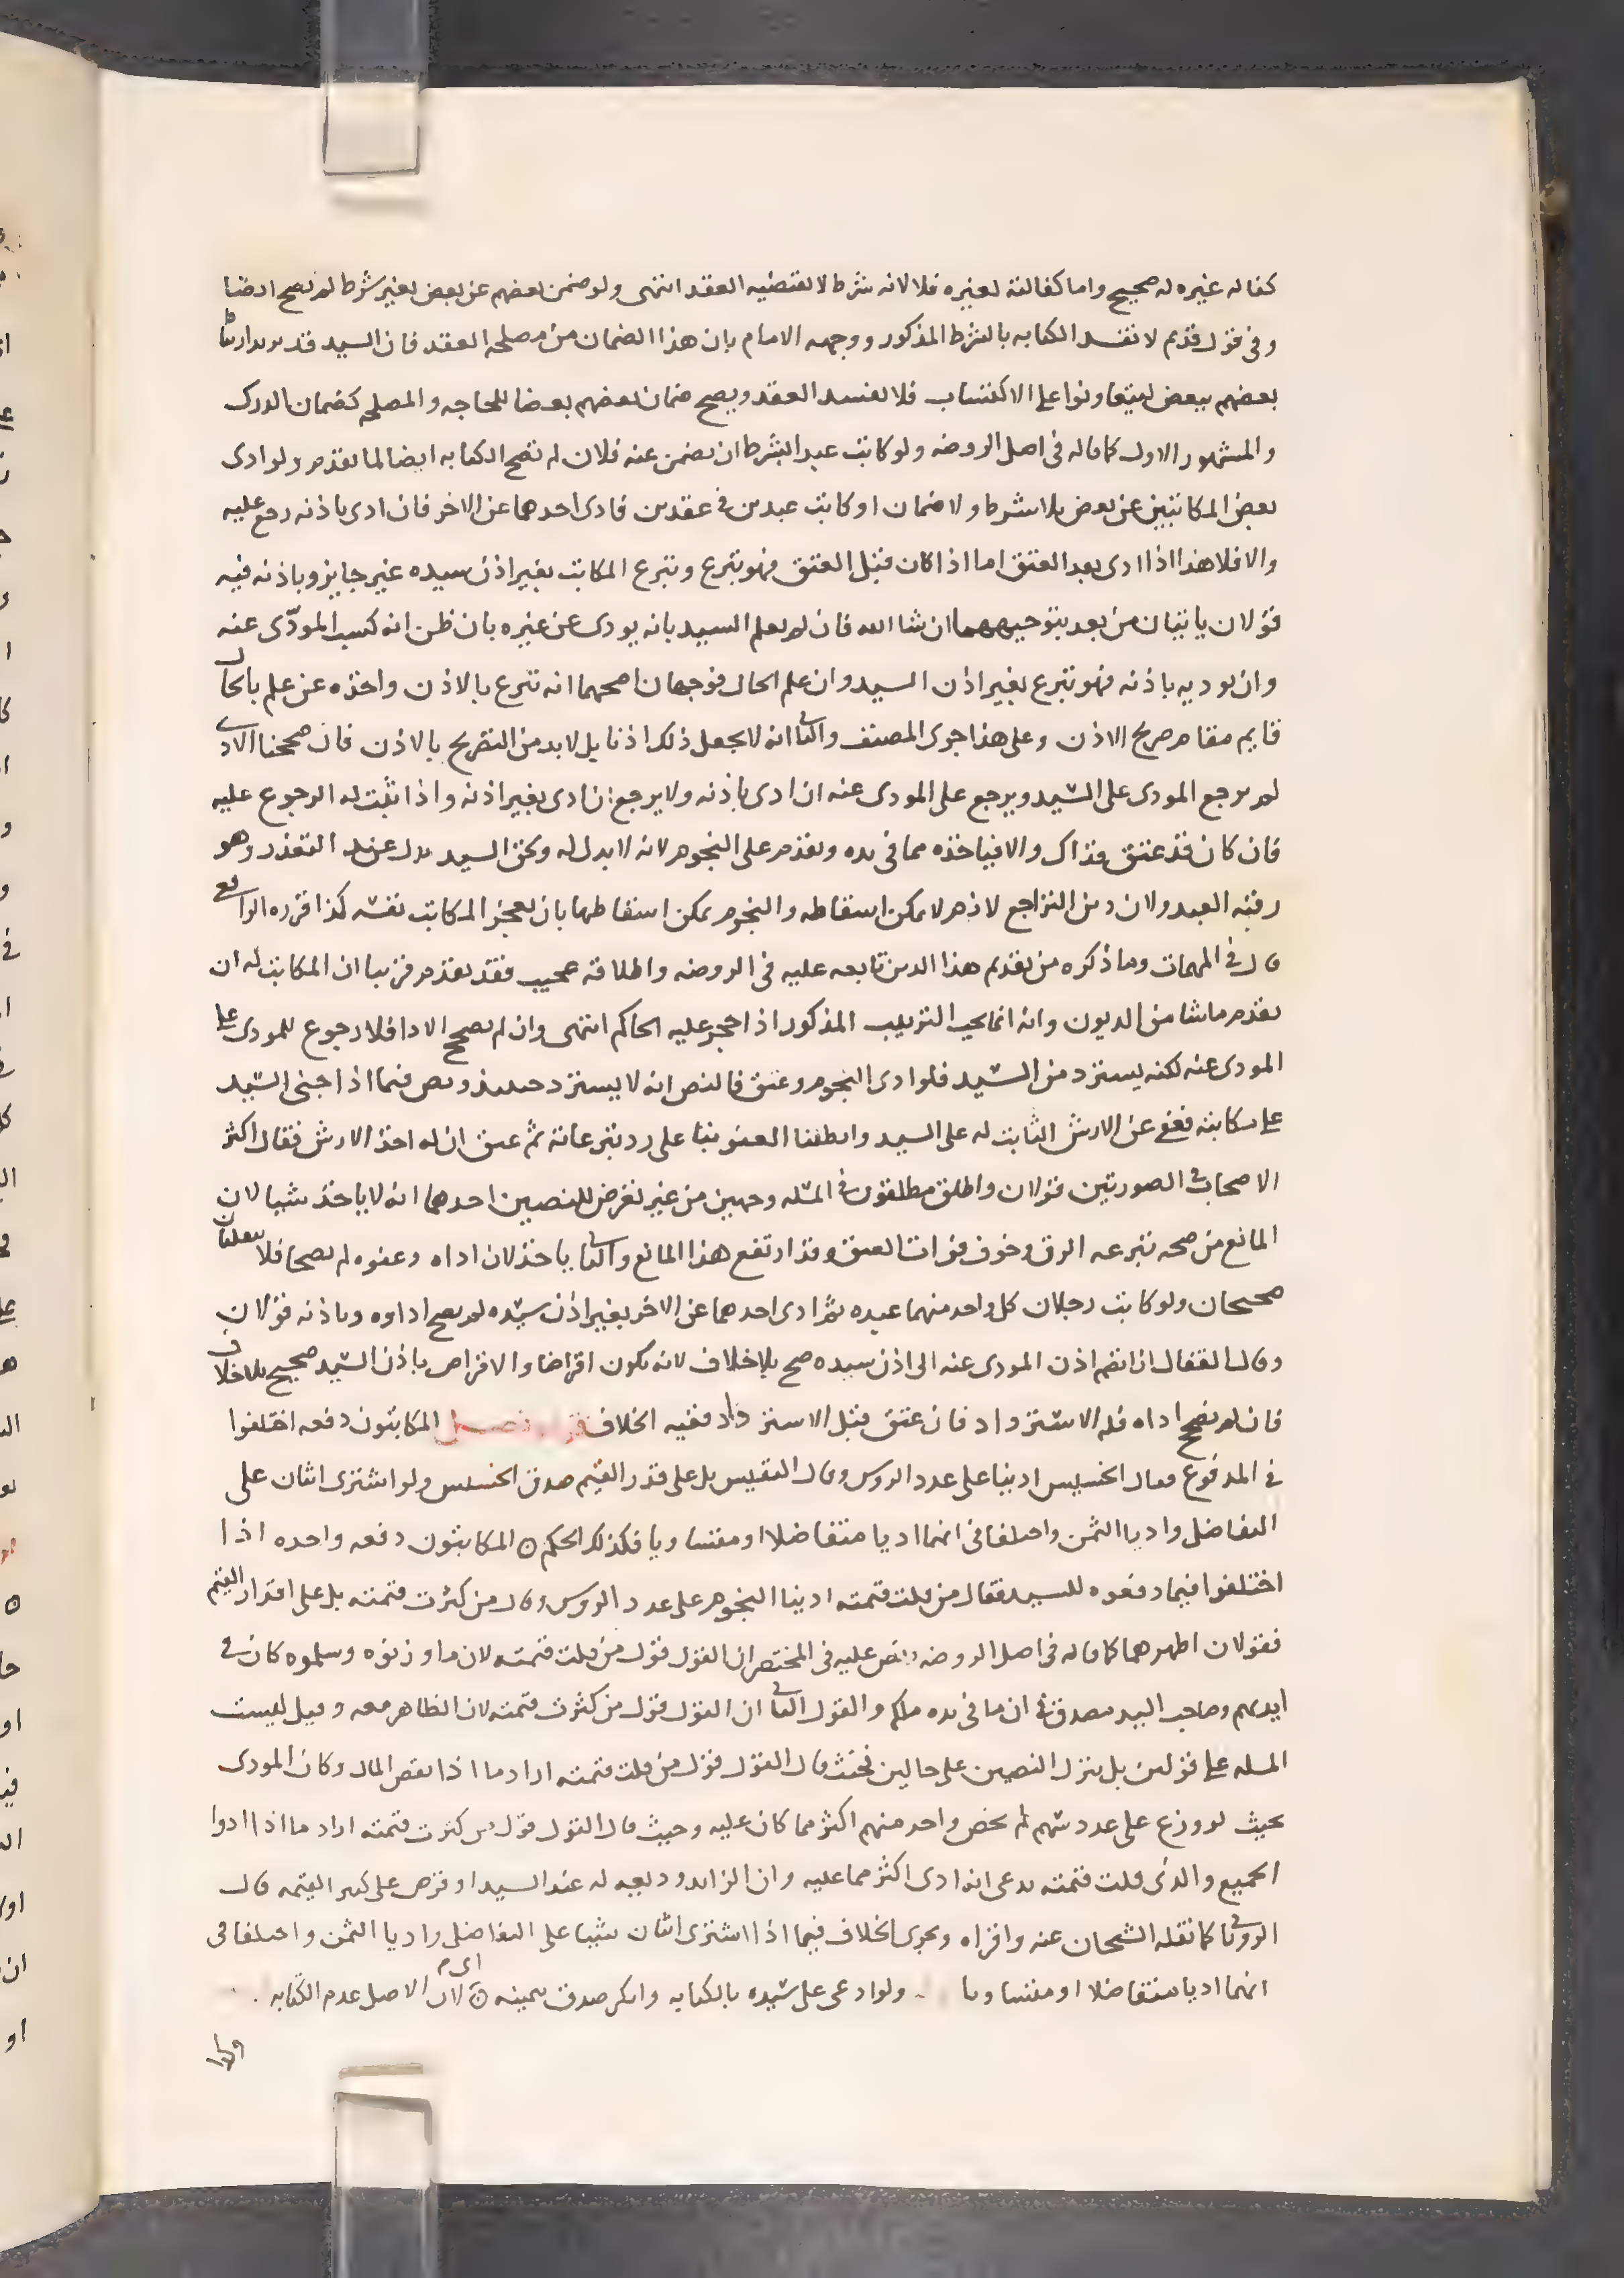 كفاله غيره له صحيح واما كفالته لغيره فلا لانه شرط لا يقتضيه العقد انتهى ولو ضمن بعضهم عن بعض بغير شرط لم يصح ايضا
وفي قول قديم لا تفسد الكتابه بالشرط المذكور ووجهه الامام بان هذا الضمان من مصلحه العقد فان السيد قد يريد ارتباط
بعضهم ببعض ليتعاونوا على الاكتساب فلا يفسد العقد ويصح ضمان بعضهم بعضا للحاجه والمصلحه كضمان الدرك
والمشهور الاول كما قاله في اصل الروضه ولو كاتب عبدا بشرط ان يضمن عنه فلان لم تصح الكتابه ايضا لما تقدم ولو ادى
بعض المكاتبين عن بعض بلا شرط ولا ضمان او كاتب عبدين في عقدين فادى احدهما عن الاخر فان ادى باذنه رجع عليه
والا فلا هذا اذا ادى بعد العتق اما اذا كان قبل العتق فهو تبرع وتبرع المكاتب بغير اذن سيده غير جايز وباذنه فيه
قولان ياتيان من بعد بتوجيههما ان شا الله فان لم يعلم السيد بانه يودى عن غيره بان ظن انه كسب المودّى عنه
وانه يوديه باذنه فهو تبرع بغير اذن السيد وان علم الحال فوجهان اصحهما انه تبرع بالاذن واخذه عن علم بالحال
قايم مقام صريح الاذن وعلى هذا جرى المصنف والثاني انه لا يجعل ذلك اذنا بل لا بد من التصريح بالاذن فان صححنا الادا
لم يرجع المودى على السيد ويرجع على المودى عنه ان ادى باذنه ولا يرجع ان ادى بغير اذنه واذا ثبت له الرجوع عليه
فان كان قد عتق فذاك والا فياخذه مما في يده ويقدم على النجوم لانه لا بدل له وحق السيد بدل عند التعذر وهو
رقبه العبد ولان دين التراجع لازم لا يمكن اسقاطه والنجوم يمكن اسقاطها بان يعجز المكاتب نفسه كذا قرره الرافعي
قال في المهمات وما ذكره من تقديم هذا الدين تابعه عليه في الروضه واطلاقه عجيب فقد تقدم قريبا ان المكاتب له ان
يقدم ما شا من الديون وانه انما يجب الترتيب المذكور اذا حجر عليه الحاكم انتهى وان لم يصحح الادا فلا رجوع للمودى على
المودى عنه لكنه يسترد من السيد فلو ادى النجوم وعتق فالنص انه لا يسترد حينيذ ونص فيما اذا جنى السيد
على مكاتبه فعفى عن الارش الثابت له على السيد وابطلنا العفو بنا على رد تبرعاته ثم عتق ان له اخذ الارش فقال اكثر
الاصحاب في الصورتين قولان واطلق مطلقون في المسله وجهين من غير تعرض للنصين احدهما انه لا ياخذ شيا لان
المانع من صحه تبرعه الرق وخوف فوات العتق وقد ارتفع هذا المانع والثاني ياخذ لان اداه وعفوه لم يصحا فلا ينقلبان
صحيحان ولو كاتب رجلان كل واحد منهما عبده ثم ادى احدهما عن الاخر بغير اذن سيده لم يصح اداوه وباذنه قولان
وقال القفال اذا انضم اذن المودى عنه الى اذن سيده صح بلا خلاف لانه يكون اقراضا والاقراض باذن السيد صحيح بلا خلاف
فان لم نصحح اداه فله الاسترداد فان عتق قبل الاسترداد ففيه الخلاف المكاتبون دفعه اختلفوا
في المدفوع فقال الخسيس ادينا على عدد الروس وقال النفيس بل على قدر القيم صدق الخسيس ولو اشترى اثنان على
التفاضل واديا الثمن واختلفا في انهما اديا متفاضلا او متساويا فكذلك الحكم ۞ المكاتبون دفعه واحده اذا
اختلفوا فيما دفعوه للسيد فقال من قلت قيمته ادينا النجوم على عدد الروس وقال من كثرت قيمته بل على اقدار القيم
فقولان اظهرهما كما قاله في اصل الروضه ونص عليه في المختصر ان القول قول من قلت قيمته لان ما وزنوه وسلموه كان في
ايديهم وصاحب اليد مصدق في ان ما في يده ملكه والقول الثاني ان القول قول من كثرت قيمته لان الظاهر معه وقيل ليست
المسله على قولين بل ينزل النصين على حالين فحيث قال القول قول من قلت قيمته اراد ما اذا نقص المال وكان المودى
بحيث لو وزع على عددهم لم يخص واحد منهم اكثر مما كان عليه وحيث قال القول قول من كثرت قيمته اراد ما اذا ادوا
الجميع والذي قلت قيمته يدعى انه ادى اكثر مما عليه وان الزايد وديعه له عند السيد او قرض على كثير القيمه قال
الروياني كما نقله الشيخان عنه واقراه ويجرى الخلاف فيما اذا اشترى اثنان شيا على التفاضل واديا الثمن واختلفا في
انهما اديا متفاضلا او متساويا ولو ادعى على سيده بالكتابه وانكر صدق بيمينه ۞ اي لان الاصل عدم الكتابه
ولو